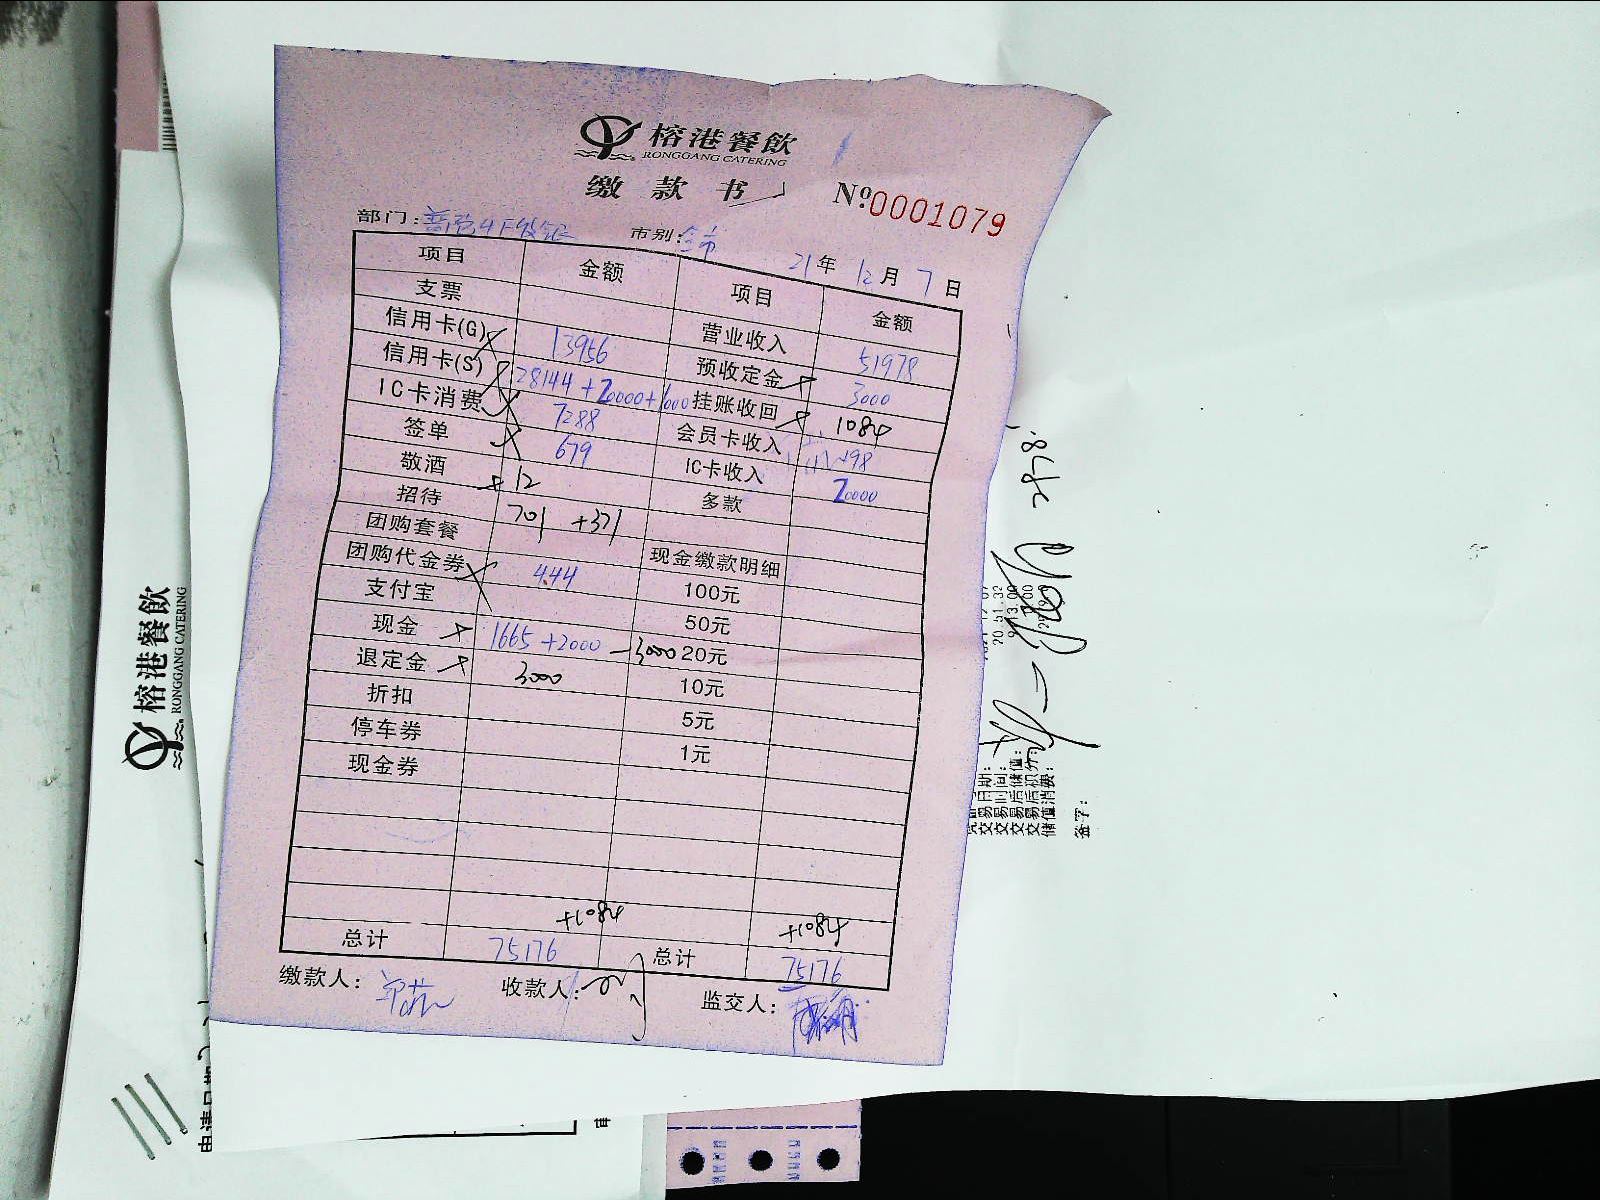 榕港餐飲
RONGGANG CATERING
缴款书
Nº0001079
部门: 市别: 全市 21年 12月 7日
项目 金额 项目 金额
支票 营业收入 51978
信用卡(G) 13956 预收定金 3000
信用卡(S) 28144+20000+1000 挂账收回 1084
IC卡消费 7288 会员卡收入
签单 679 IC卡收入 20000
敬酒 12 多款
招待 701 +371
团购套餐 现金缴款明细
团购代金券 444 100元
支付宝 50元
现金 1665+2000 -3000 20元
退定金 3000 10元
折扣 5元
停车券 1元
现金券
+1084 +1084
总计 75176 总计 75176
缴款人: 收款人: 监交人:
榕港餐飲
RONGGANG CATERING
交易日期:
交易时间: 20:51:32
交易后储值:
交易后积分:
储值消费:
签字: